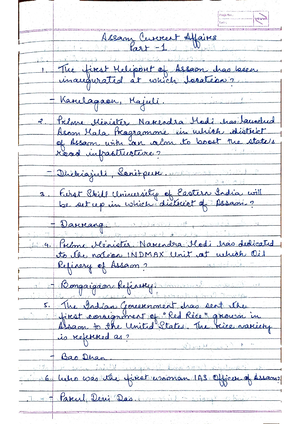 Assam Current Affairs
Part -1
1. The first Helipont of Assam has been
inaugurated at which location?
- Karelagaon, Kajuli.
2. Prime Minister Narendra Modi has launched
Asom Mala Programme in which district
of Assam with an aim to boost the state's
road infrastructure?
- Dhekiajuli, Sonitpur.
3. First Skill University of Eastern India will
be set up in which district of Assam?
- Darrang.
4. Prime Minister Narendra Modi has dedicated
to the nation INDMAX Unit at which Oil
Refinery of Assam?
- Bongaigaon Refinery.
5. The Indian Government has sent the
first consignment of "Red Rice" grown in
Assam to the United States. The rice variety
is referred as?
- Bao Dhan.
6. Who was the first woman IAS Officer of Assam?
- Parul Devi Das.